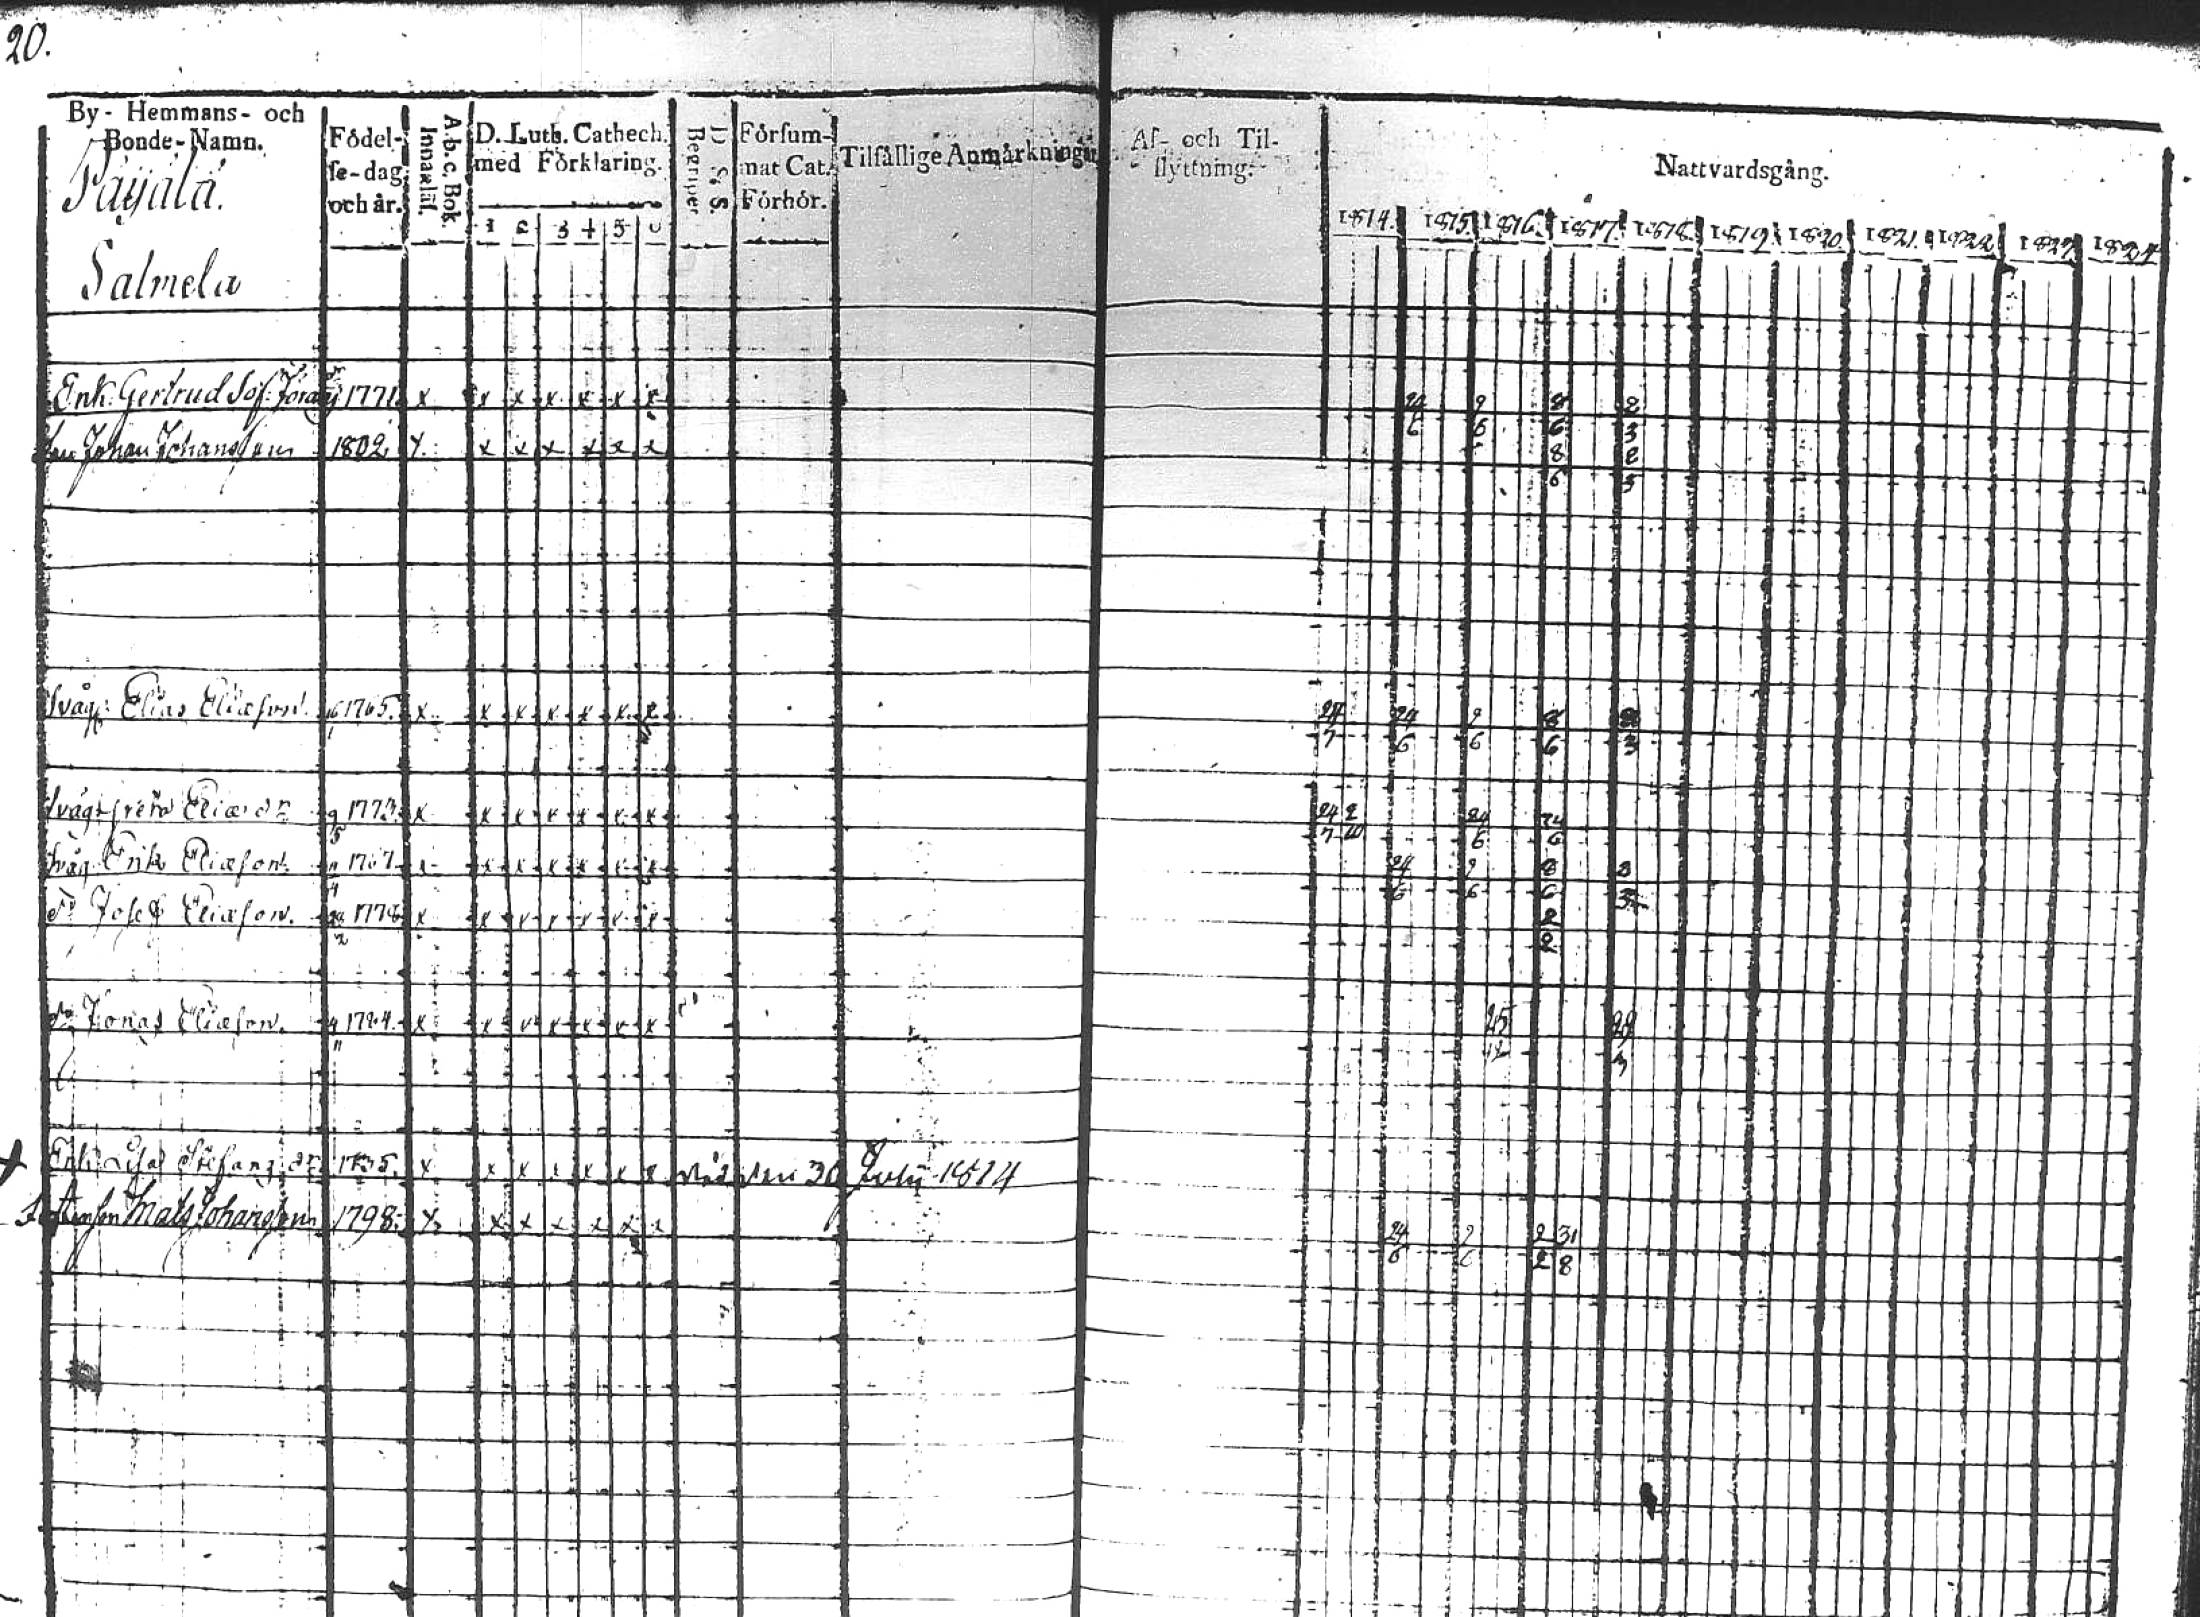 20.
By- Hemmans- och
Bonde-Namn.
Födel-
se-dag
och år.
A.b.c. Bok.
Innanläs.
D. Luth. Cathech.
med Förklaring.
1 2 3 4 5 6
D. S. S.
Begriper
Försum-
mat Cat.
Förhör.
Tilfällige Anmärkningar
Af- och Til-
flyttning.
Nattvardsgång.
1814. 1815. 1816. 1817. 1818. 1819. 1820. 1821. 1822. 1823. 1824
Payala.
Salmela
Enk. Gertrud Sof. 1771. x x x x x x x 24/6 9/6 8/6 8/3
Johan Johansson 1802. x. x x x x x x 8/6 8/3
Svåg: Elias Eliæson. 16/1 1765. x x x x x x x 24/7 24/6 9/6 8/6 8/3
Eliædr 9/5 1773. x x x x x x x 24/7 2/10 24/6 24/6
Svåg Erik Eliæson. 11/4 1767 x x x x x x x 24/6 9/6 8/6 8/3
do Josef Eliæson. 28/2 1778 x x x x x x x 2/2
do Jonas Eliæson. 4/11 x x x x x x x
Enk. Lisa 1735. x x x x x x x död den 30 July 1814
Mats Johansson 1798. x x x x x x x 24/6 9/6 2/2 31/8